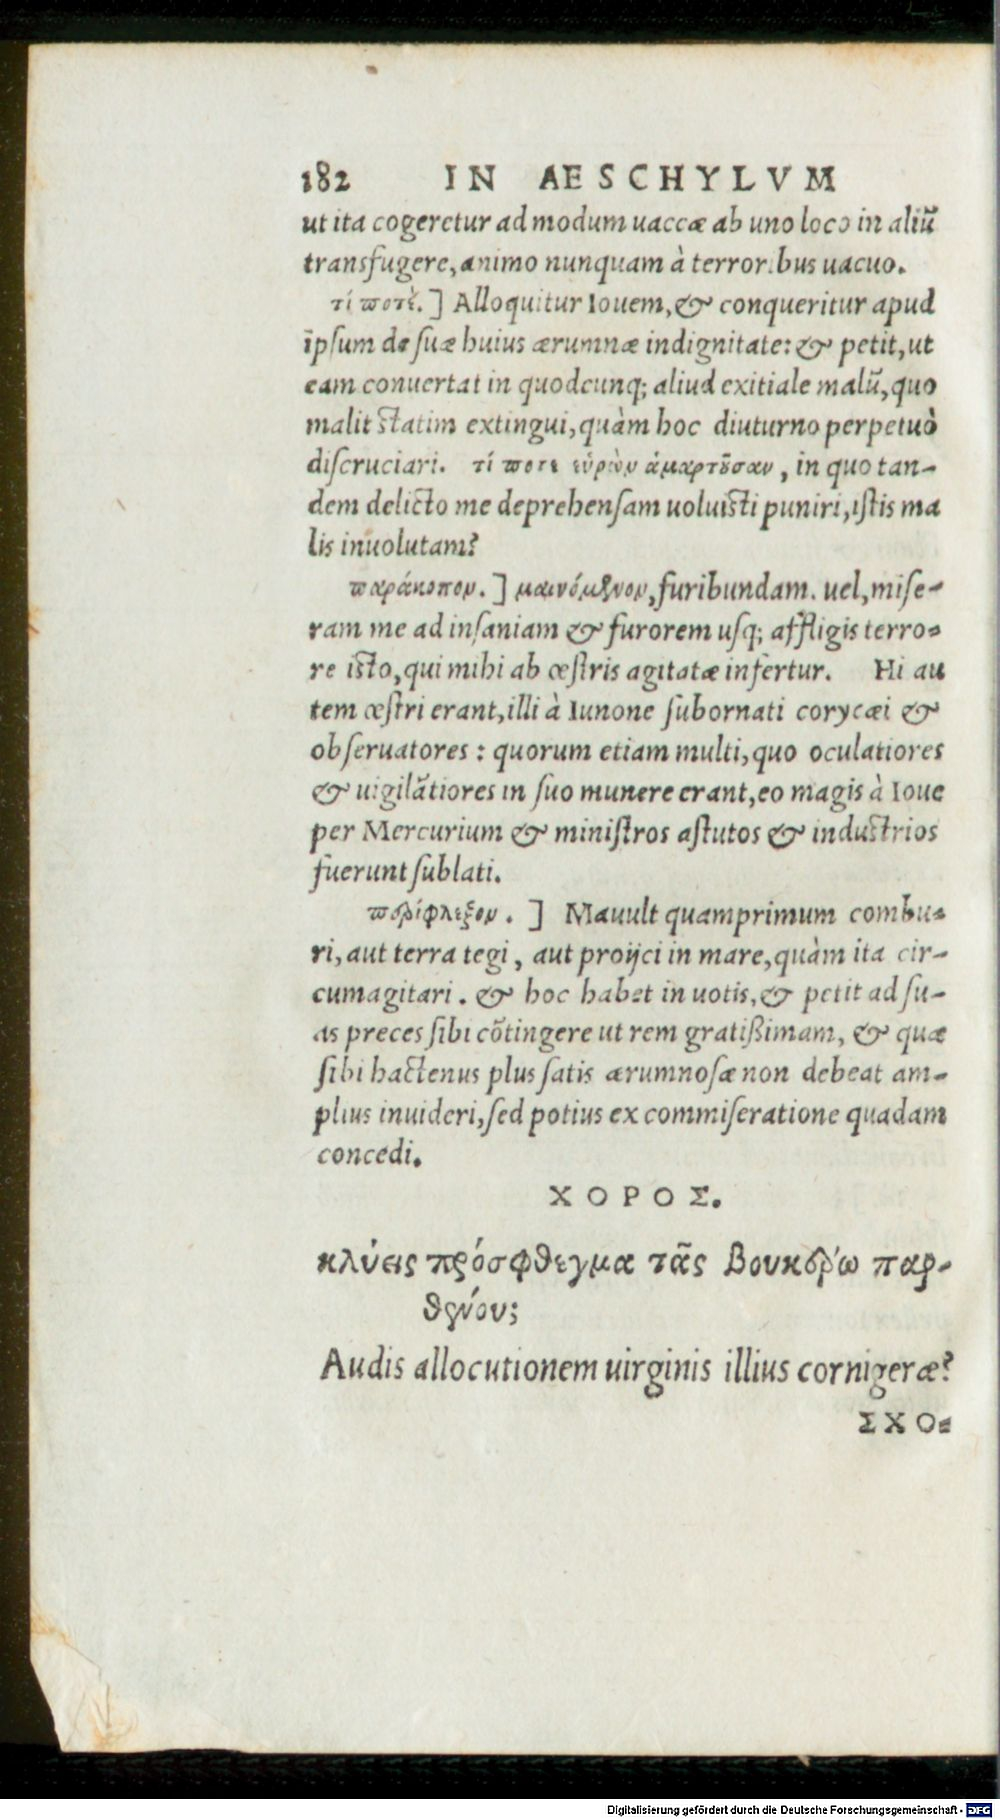 182 IN AESCHYLVM
ut ita cogeretur ad modum uaccæ ab uno loco in aliũ
transfugere, animo nunquam à terroribus uacuo.
τί ποτὲ.] Alloquitur Iouem, & conqueritur apud
ipsum de suæ huius ærumnæ indignitate: & petit, ut
eam conuertat in quodcunq; aliud exitiale malũ, quo
malit statim extingui, quàm hoc diuturno perpetuò
discruciari. τί ποτε εὑρὼν ἁμαρτοῦσαν, in quo tan-
dem delicto me deprehensam uoluisti puniri, istis ma
lis inuolutam?
παράκοπον.] μαινόμενον, furibundam. uel, mise-
ram me ad insaniam & furorem usq; affligis terro-
re isto, qui mihi ab œstris agitatæ infertur. Hi au
tem œstri erant, illi à Iunone subornati corycæi &
obseruatores: quorum etiam multi, quo oculatiores
& uigilãtiores in suo munere erant, eo magis à Ioue
per Mercurium & ministros astutos & industrios
fuerunt sublati.
πυρίφλεξον.] Mauult quamprimum combu-
ri, aut terra tegi, aut proijci in mare, quàm ita cir-
cumagitari. & hoc habet in uotis, & petit ad su-
as preces sibi cõtingere ut rem gratißimam, & quæ
sibi hactenus plus satis ærumnosæ non debeat am-
plius inuideri, sed potius ex commiseratione quadam
concedi.
ΧΟΡΟΣ.
κλύεις πρόσφθεγμα τᾶς βουκέρω παρ-
θένου;
Audis allocutionem uirginis illius cornigeræ?
ΣΧΟ-
Digitalisierung gefördert durch die Deutsche Forschungsgemeinschaft - DFG